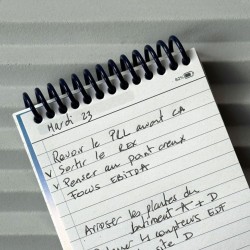 82%
Mardi 23
Revoir le P&L avant CA
v Sortir le REX
v Penser au point creux
FOCUS EBITDA
Arroser les plantes du
bâtiment A + D
les compteurs EDF
site D